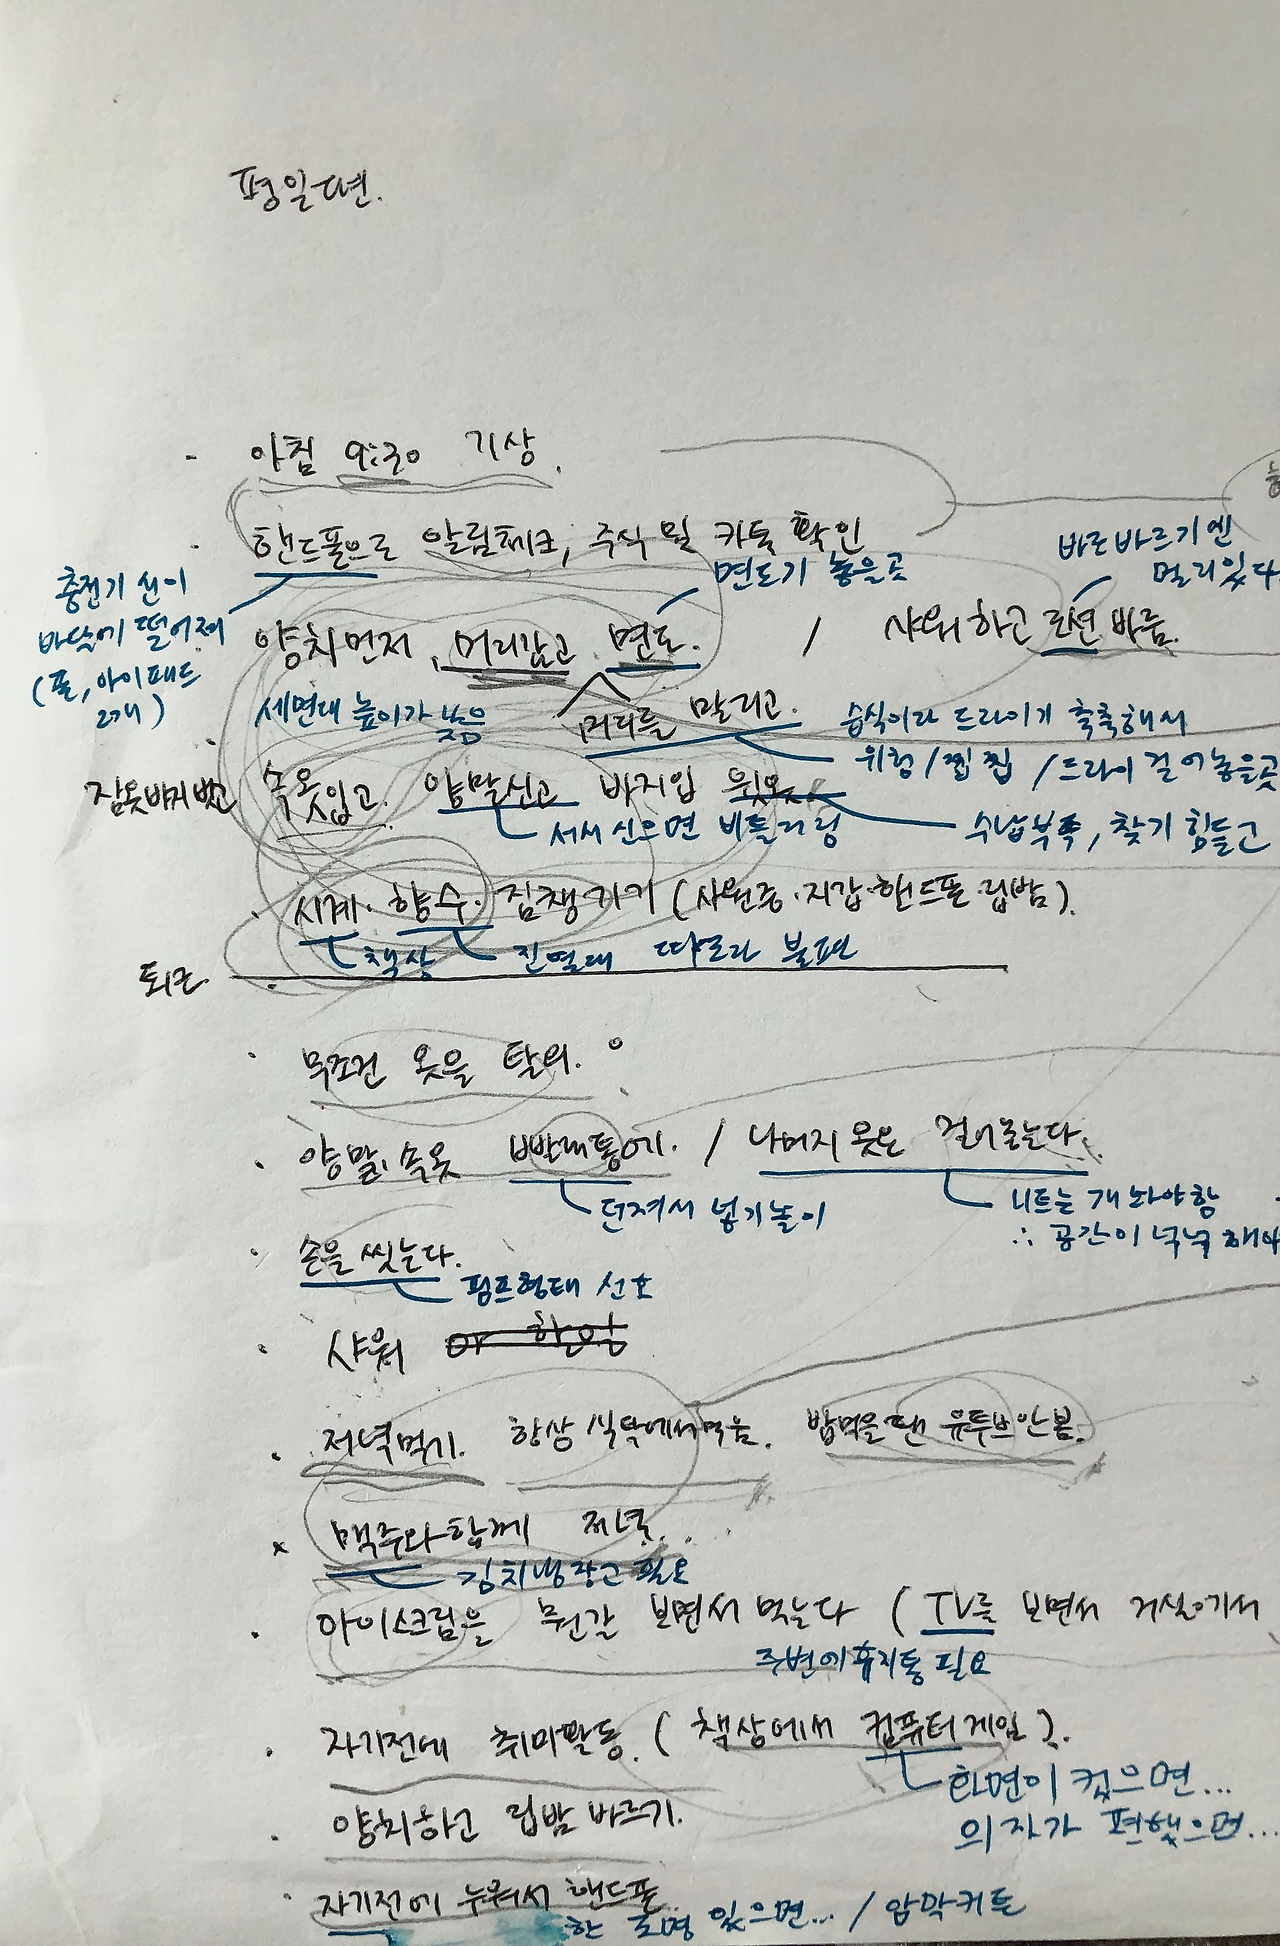 평일저녁.
· 아침 9:30 기상.
· 핸드폰으로 알림체크, 주식 및 카톡 확인
바로바르기엔
멀리있다
면도기 놓을곳
충전기 선이
바닥에 떨어져
(폰, 아이패드
2개)
양치먼저, 머리감고 면도. / 샤워하고 로션바름.
세면대 높이가 낮음
머리를 말리고.
습식이라 드라이기 축축해서
위험/찝찝 /드라이 걸어놓을곳
잠옷바지벗고 속옷입고. 양말신고 바지입 윗옷
서서 신으면 비틀거림
수납부족, 찾기 힘들고
· 시계·향수· 짐챙기기 (사원증·지갑·핸드폰·립밤).
책상
진열대 따로라 불편
퇴근.
· 무조건 옷을 탈의.
· 양말, 속옷 빨래통에. / 나머지 옷은 걸어놓는다.
던져서 넣기놀이
니트는 개 놔야함
∴ 공간이 넉넉해야
· 손을 씻는다.
펌프형태 선호
· 샤워 or 할일
· 저녁먹기. 항상 식탁에서먹음. 밥먹을땐 유투브안봄.
x 맥주와함께 저녁.
김치냉장고 필요
· 아이스크림을 뭔갈 보면서 먹는다 (TV를 보면서 거실에서
주변에휴지통 필요
· 자기전에 취미활동. (책상에서 컴퓨터게임).
화면이 컸으면...
의자가 편했으면...
· 양치하고 립밤 바르기.
· 자기전에 누워서 핸드폰
한 조명 있으면... / 암막커튼